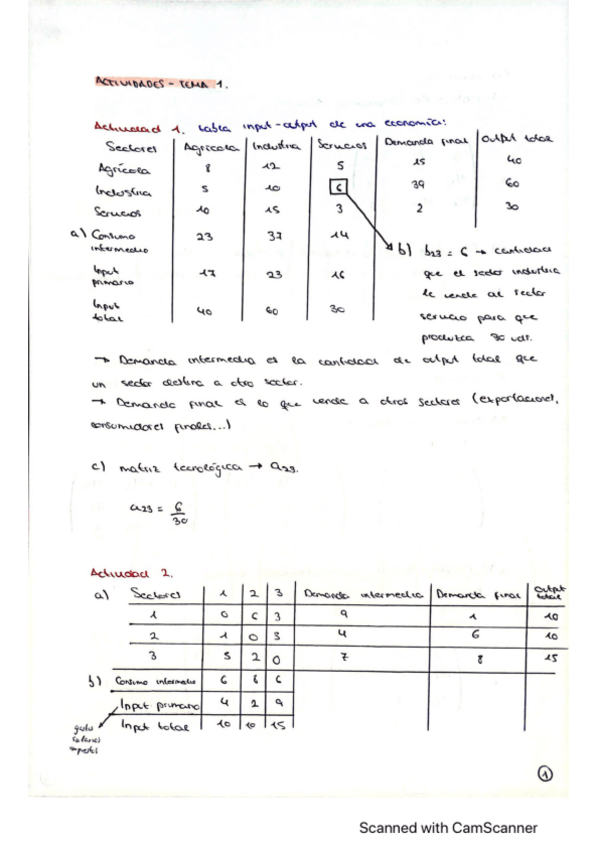 ACTIVIDADES - TEMA 1.
Actividad 1. tabla input-output de una economía:
Sectores Agrícola Industria Servicios Demanda final Output total
Agrícola 8 12 5 15 40
Industria 5 10 6 39 60
Servicios 10 15 3 2 30
a) Consumo intermedio 23 37 14
Input primario 17 23 16
Input total 40 60 30
b) b23 = 6 → cantidad
que el sector industria
le vende al sector
servicio para que
produzca 30 udr.
→ Demanda intermedia es la cantidad de output total que
un sector destina a otro sector.
→ Demanda final es lo que vende a otros sectores (exportaciones,
consumidores finales...)
c) matriz tecnológica → a23.
a23 = 6/30
Actividad 2.
a) Sectores 1 2 3 Demanda intermedia Demanda final Output total
1 0 6 3 9 1 10
2 1 0 3 4 6 10
3 5 2 0 7 8 15
b) Consumo intermedio 6 8 6
Input primario 4 2 9
Input total 10 10 15
salarios
1
Scanned with CamScanner